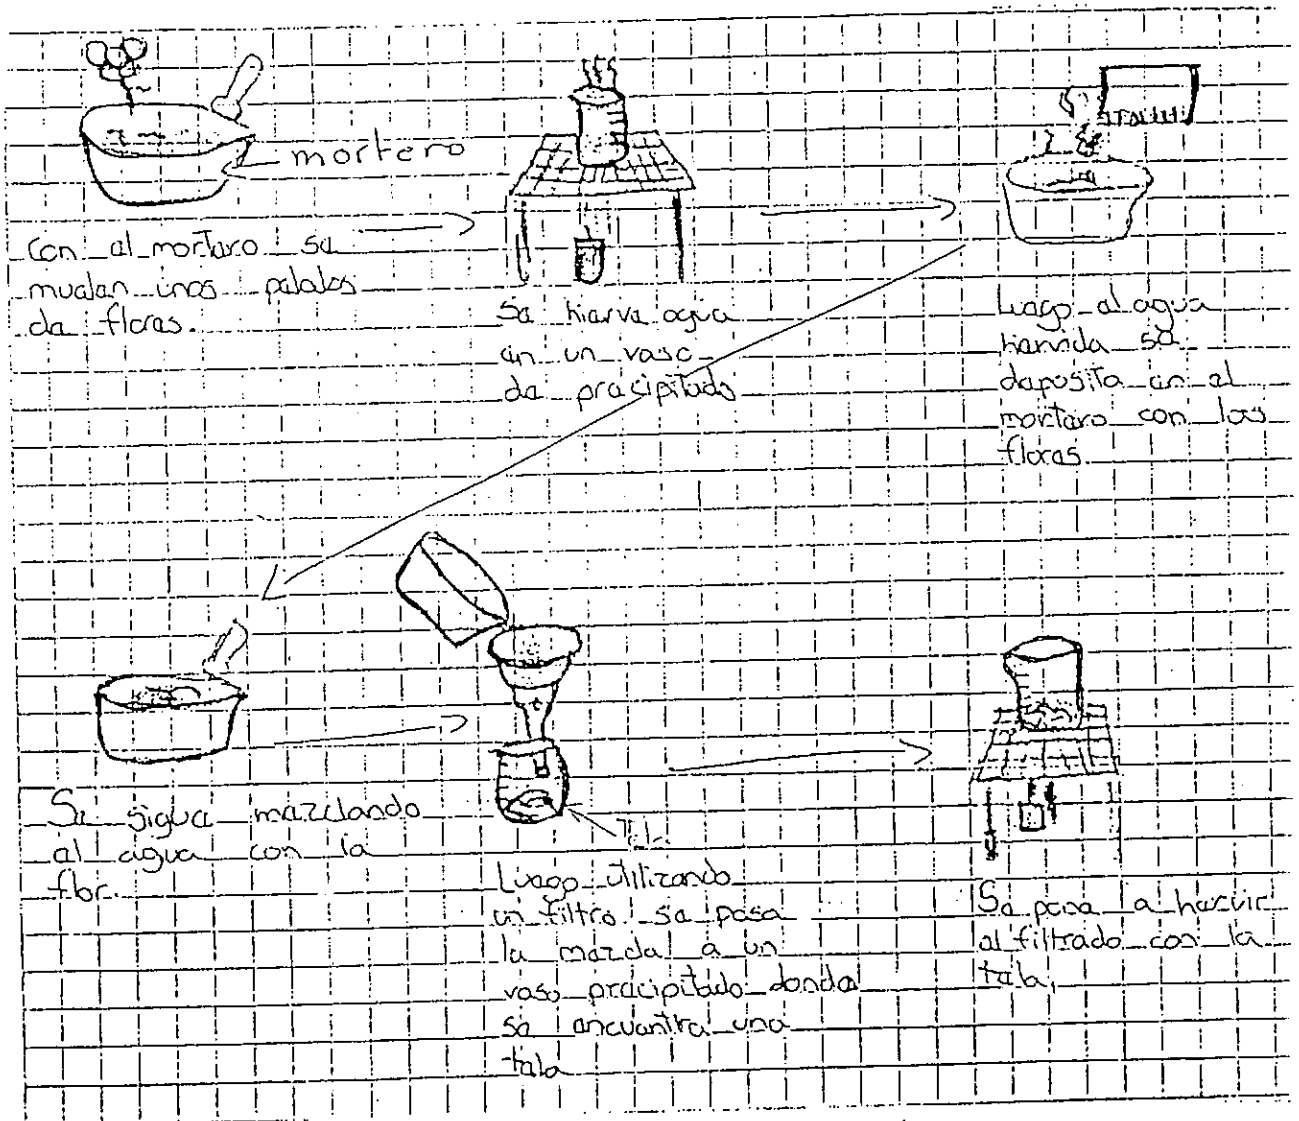 mortero
Con el mortero se
muelen unos petalos
de flores.
Se hierve agua
en un vaso
de precipitado
Luego el agua
hervida se
deposita en el
mortero con las
flores
Se sigue mezclando
el agua con la
flor.
Tela
Luego utilizando
un filtro se pasa
la mezcla a un
vaso precipitado donde
se encuentra una
tela
Se pone a hervir
el filtrado con la
tela.